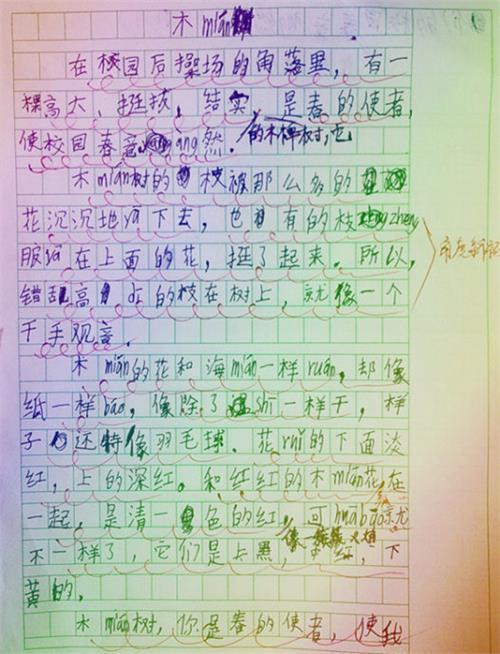 木mián
在校园后操场的角落里,有一
棵高大、挺拔、结实的木棉树,它是春的使者,
使校园春意 àng然.
木mián树的枝被那么多的
花沉沉地yā下去,也有的枝 zhēng
服yā在上面的花,挺了起来.所以,
错乱高 的枝在树上,就像一个
千手观音.
木mián的花和海mián一样ruǎn,却像
纸一样báo,像除了 shī一样干,样
子还特像羽毛球.花ruǐ的下面淡
红,上的深红。和红红的木mián花在
一起,是清一色的红,可huābāo就
不一样了,它们是上黑,中红,下
像一簇簇火焰
黄的.
木mián树,你是春的使者,使我